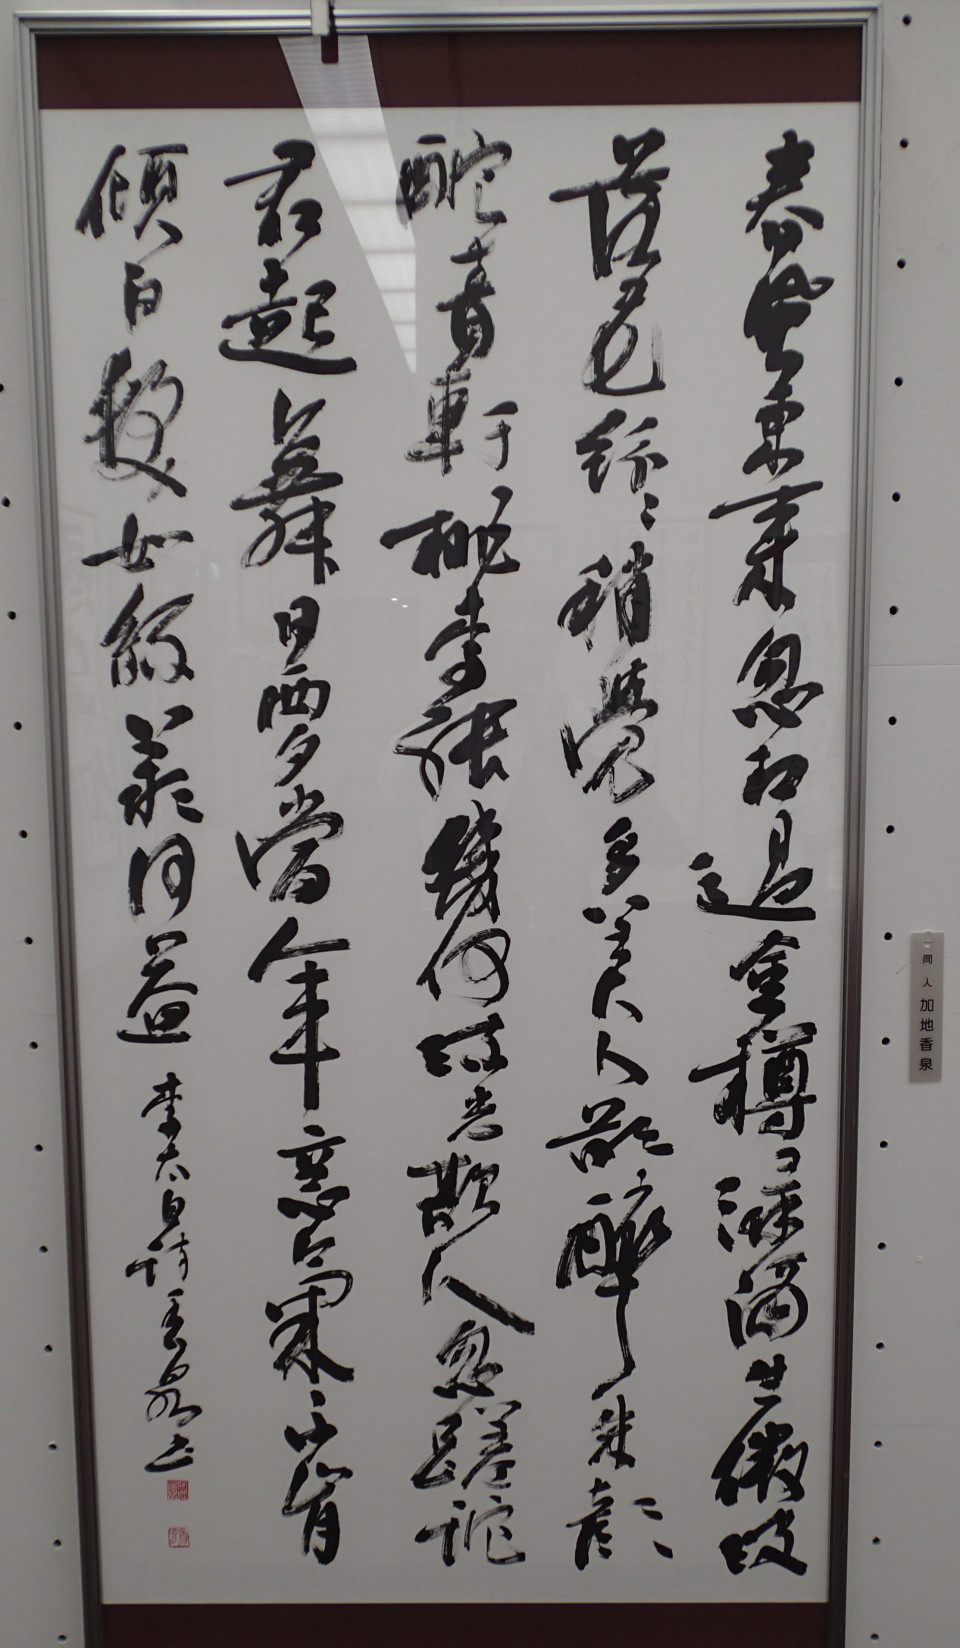 春風東來忽相過金樽淥酒生微波
落花紛々稍覺多美人欲醉朱顏
酡青軒桃李能幾何流光欺人忽蹉跎
君起舞日西夕當年意氣不肯
傾白髮如絲歎何益 李太白詩 香泉書
同人 加地香泉